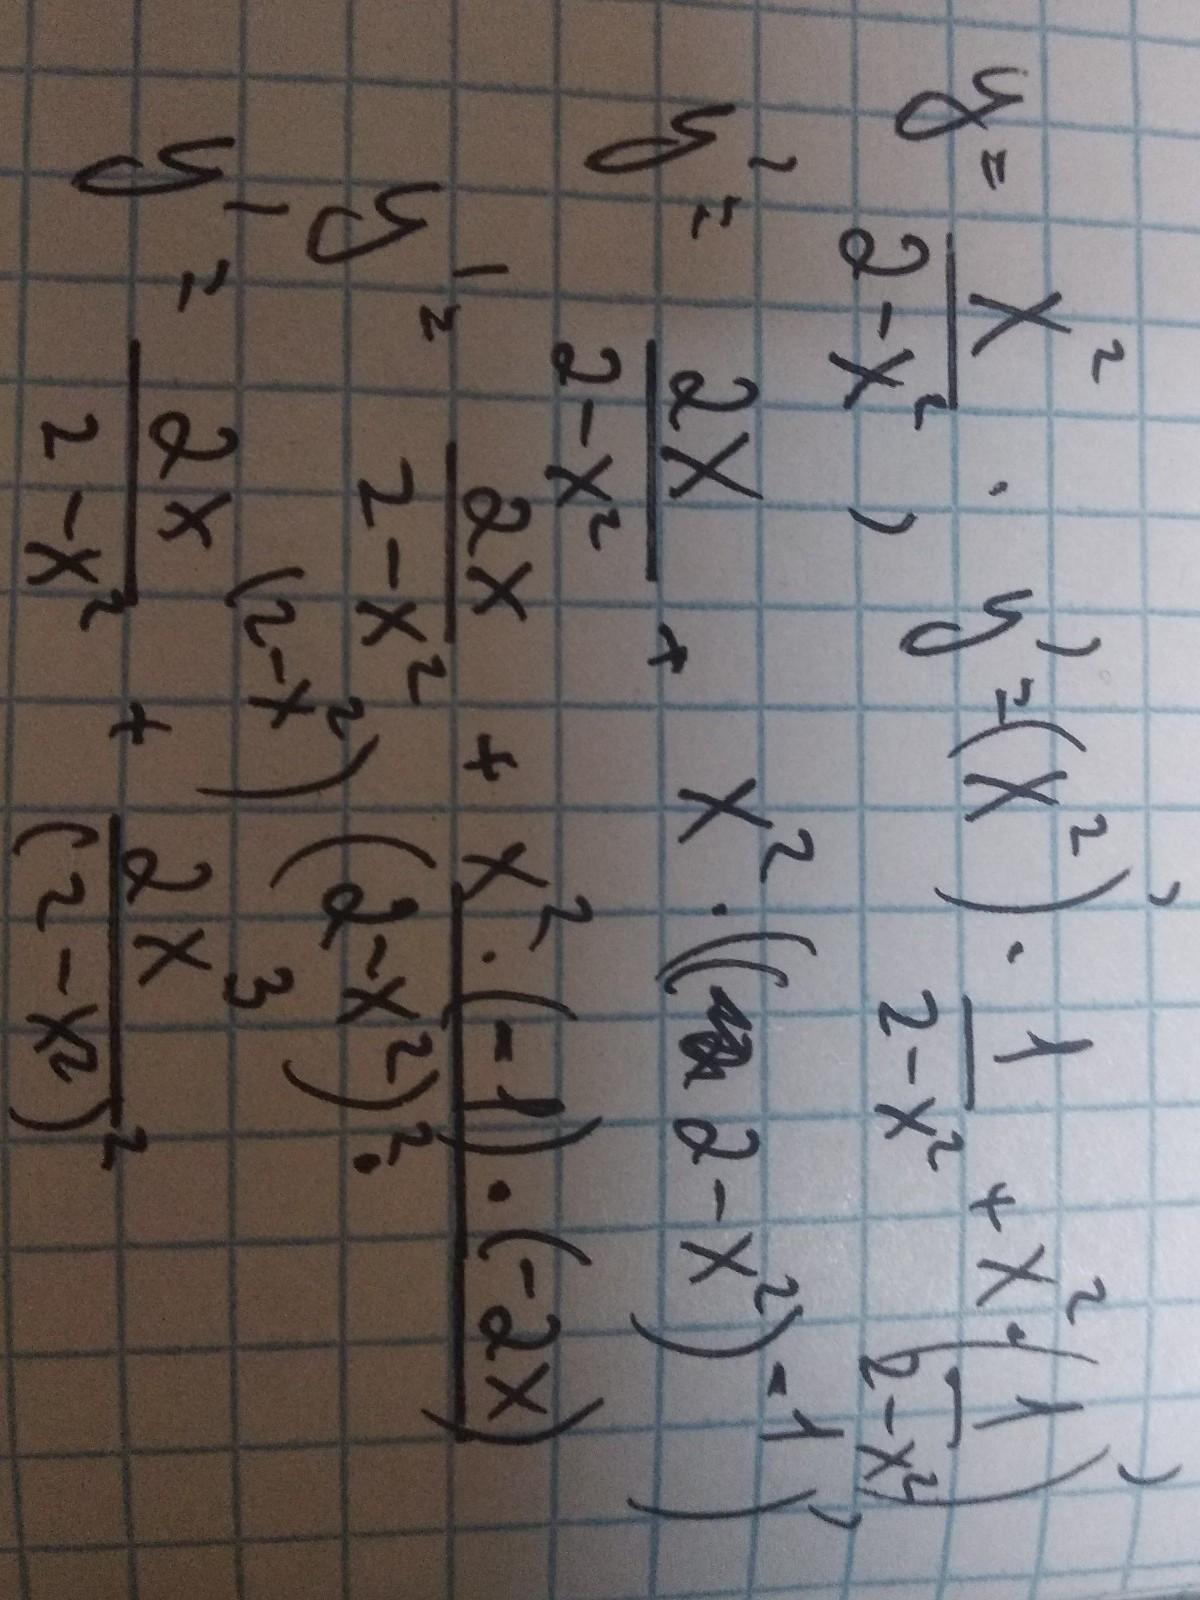 y = x²/(2-x²) . , y' = (x²)' · 1/(2-x²) + x² · (1/(2-x²))'
y' = 2x/(2-x²) + x² · ((2-x²)⁻¹)'
y' = 2x/(2-x²) + x²·(-1)·(-2x)/(2-x²)².
y' = 2x(2-x²)/(2-x²) + 2x³/(2-x²)²